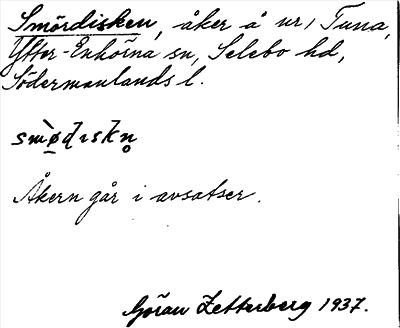 Smördisken, åker å nr 1 Tuna,
Ytter-Enhörna sn, Selebo hd,
Södermanlands l.
Åkern går i avsatser.
Göran Zetterberg 1937.